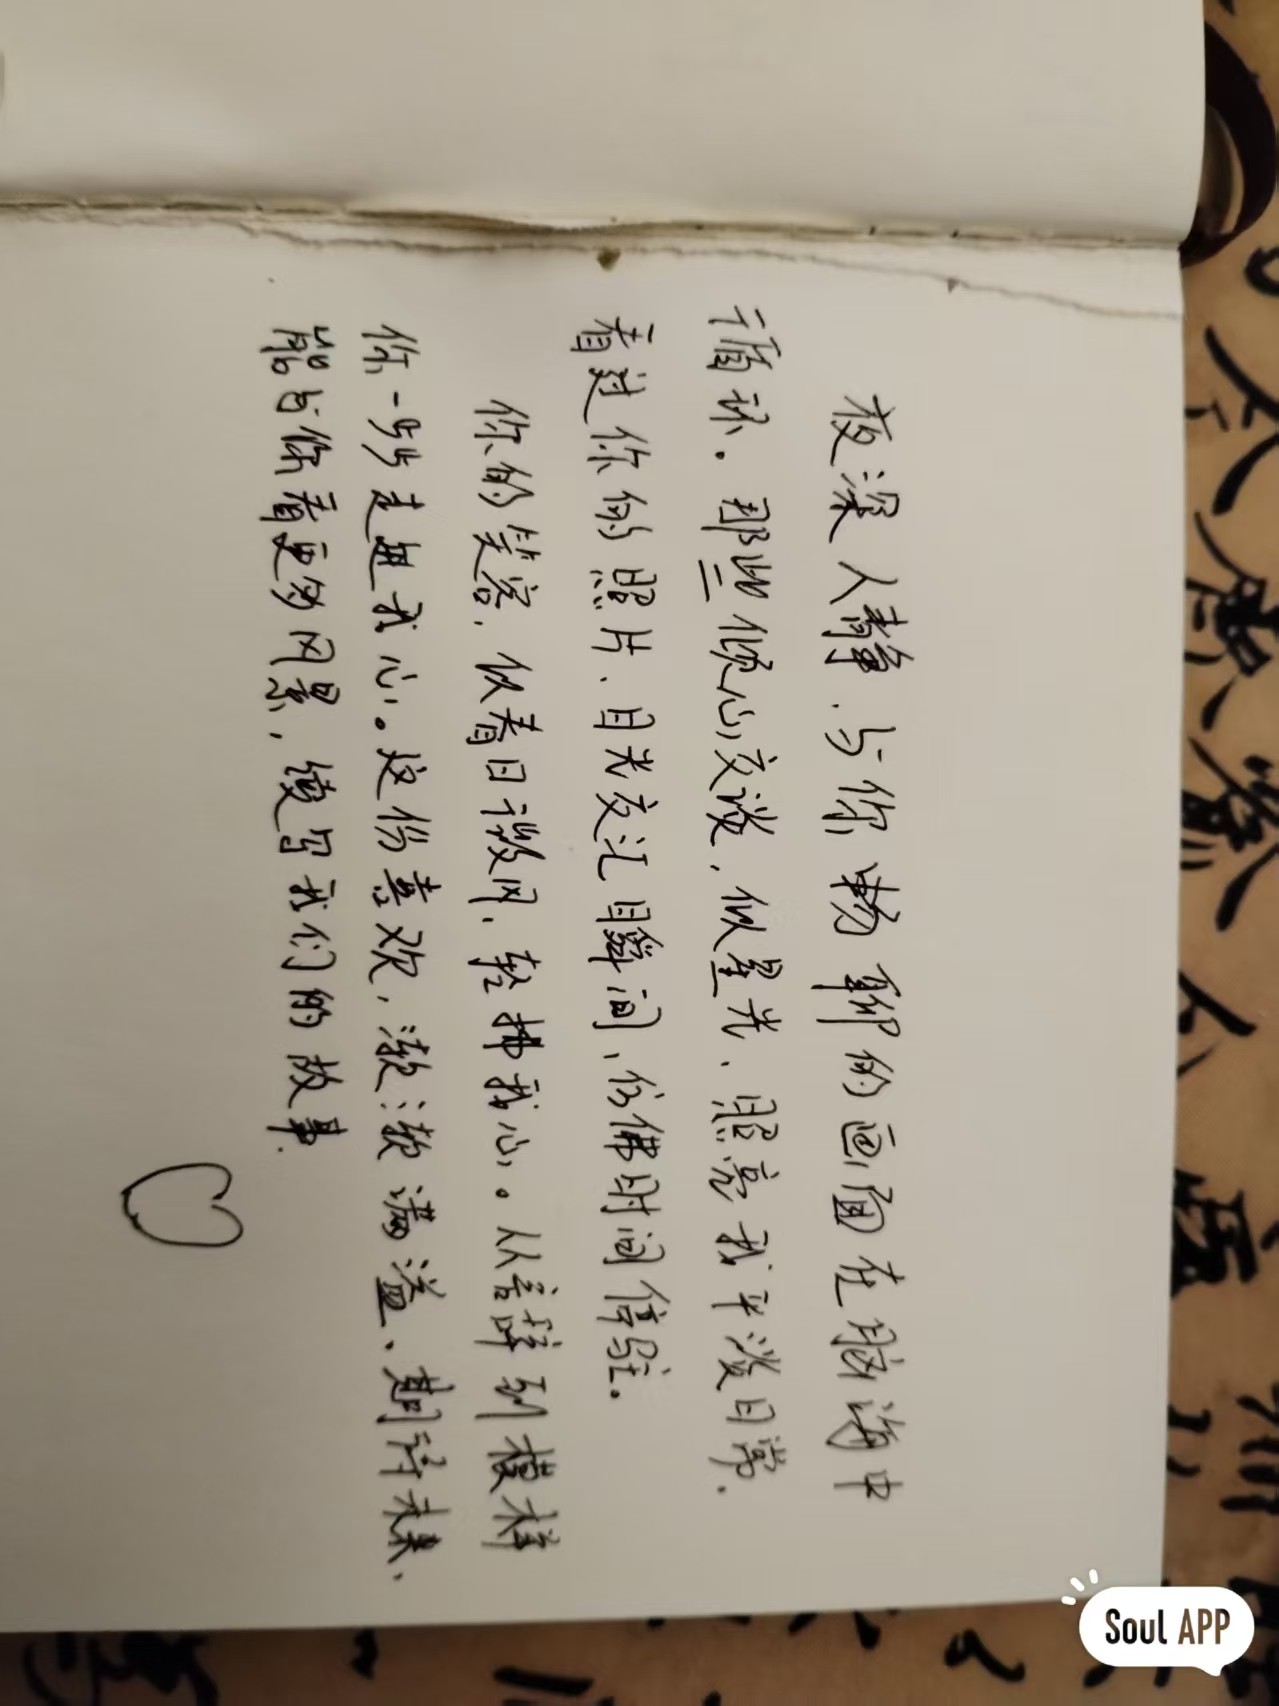 夜深人静,与你畅聊的画面在脑海中
循环。那些倾心交谈,似星光、照亮我平淡日常.
看过你的照片、目光交汇瞬间,仿佛时间停驻。
你的笑容,似春日微风,轻拂我心。从言辞到模样
你一步步走进我心。这份喜欢,渐渐满溢、期待未来、
能与你看更多风景,续写我们的故事.
Soul APP